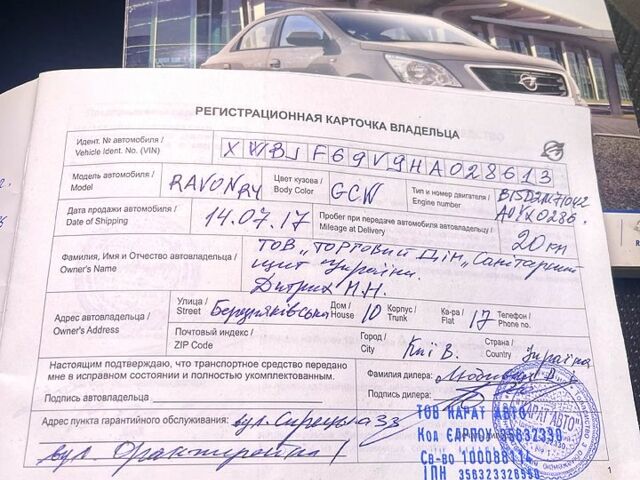 РЕГИСТРАЦИОННАЯ КАРТОЧКА ВЛАДЕЛЬЦА
Идент. № автомобиля /
Vehicle Ident. No. (VIN)
XWBJF69V9HA028613
Модель автомобиля /
Model
RAVON R4
Цвет кузова /
Body Color
GCW
Тип и номер двигателя /
Engine number
B15D2
Дата продажи автомобиля /
Date of Shipping
14.07.17
Пробег при передаче автомобиля автовладельцу /
Mileage at Delivery
20 км
Фамилия, Имя и Отчество автовладельца /
Owner's Name
ТОВ „Торговий Дім „Санітарний
щит України.
Дитрих М.Н.
Адрес автовладельца /
Owner's Address
Улица /
Street
Бердянківська
Дом /
House
10
Корпус /
Trunk
Ка-ра /
Flat
17
Телефон /
Phone no.
Почтовый индекс /
ZIP Code
Город /
City
Київ.
Страна /
Country
Україна
Настоящим подтверждаю, что транспортное средство передано
мне в исправном состоянии и полностью укомплектованным.
Подпись автовладельца
Фамилия дилера:
Подпись дилера:
Адрес пункта гарантийного обслуживания:
вул. Сирецька 33
вул.
ТОВ КАРАТ АВТО
Код ЄДРПОУ 35632330
Св-во 100088114
ІПН
"КАРАТ АВТО"
1